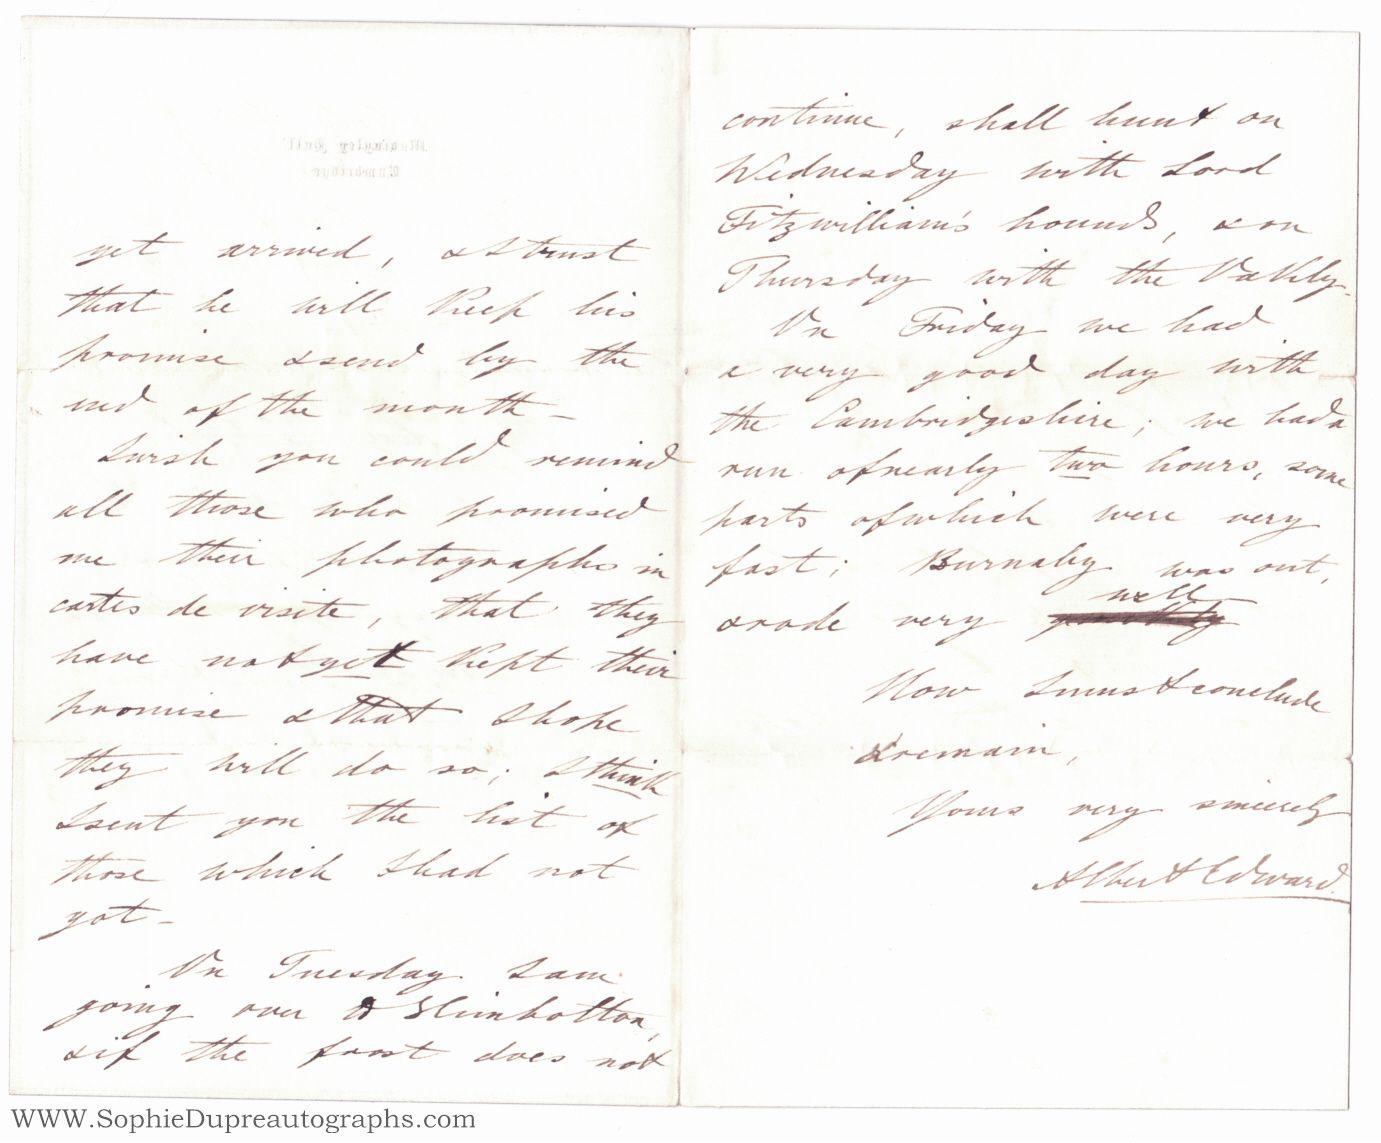 yet arrived, & I trust
that he will keep his
promise & send by the
end of the month –
I wish you could remind
all those who promised
me their photographs in
cartes de visite, that they
have not yet kept their
promise & that I hope
they will do so; I think
I sent you the list of
those which I had not
got –
On Tuesday I am
going over to Kimbolton,
& if the frost does not
continue, shall hunt on
Wednesday with Lord
Fitzwilliam's hounds, & on
Thursday with the Oakley –
On Friday we had
a very good day with
the Cambridgeshire; we had a
run of nearly two hours, some
parts of which were very
fast; Burnaby was out,
& rode very well
Now I must conclude
& remain,
Yours very sincerely
Albert Edward.
Madingley Hall
Cambridge
WWW.SophieDupreautographs.com